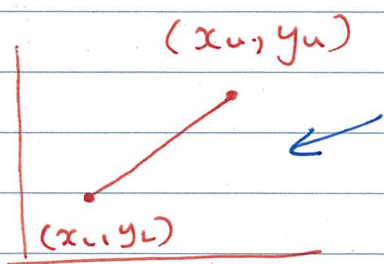 (xu, yu)
(xL, yL)